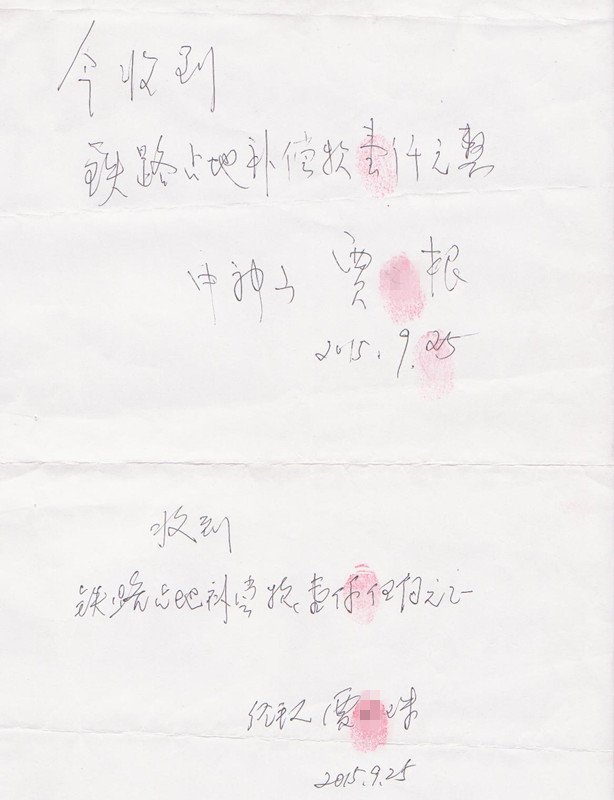 今收到
铁路占地补偿款壹仟元整
申神上 贾 根
2015.9.25
收到
铁路占地补尝款壹仟伍佰元正
经手人 贾 珠
2015.9.25